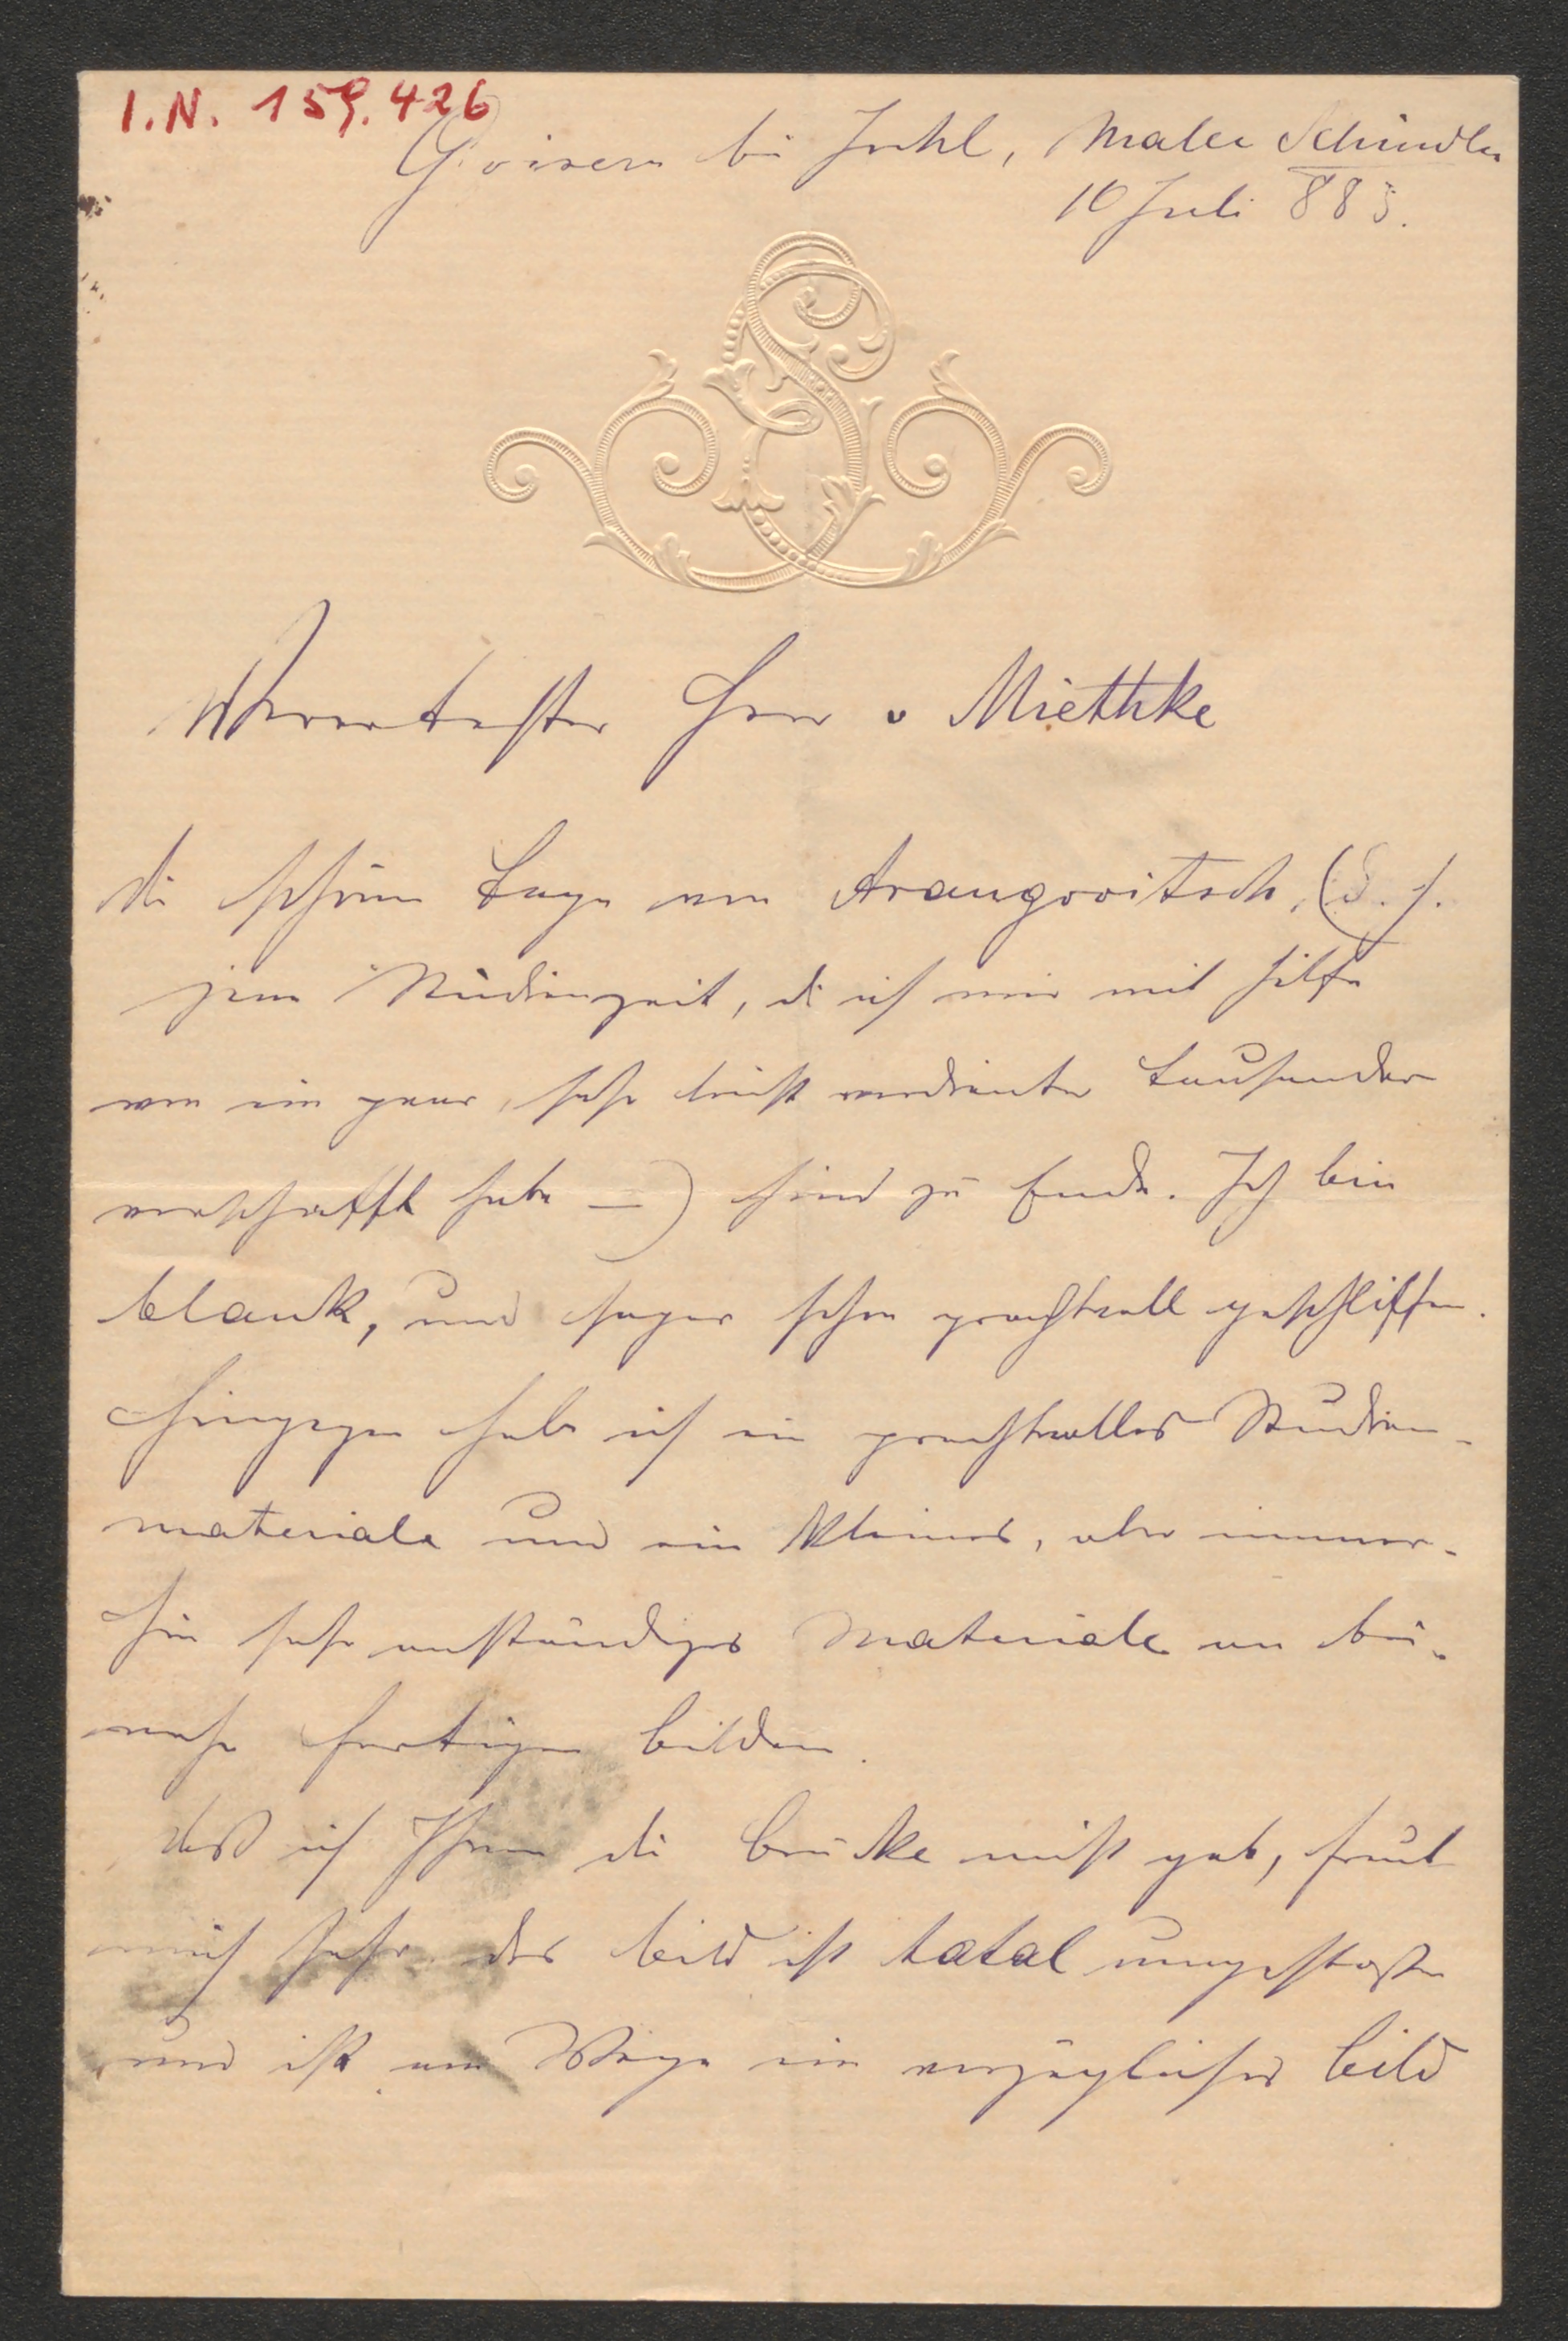 I.N. 159.426
Goisern bei Ischl, Maler Schindler
10 Juli 883.
Werertester Herr v Miethke
die schönen Tage von Arangovitsch, (d. h.
jene Studienzeit, die ich mir mit Hilfe
von ein paar, sehr leicht verdienter Tausender
verschafft habe —) sind zu Ende. Ich bin
blank, und sogar schon prachtvoll geschliffen.
Hingegen habe ich ein prachtvolles Studien-
materiale und ein kleines, aber immer-
hin sehr anständiges Materiale an bei-
nahe fertigen Bildern.
daß ich Ihnen die Brücke nicht gab, freut
mich sehr. das Bild ist total umgestoßen
und ist am Wege ein vorzügliches Bild